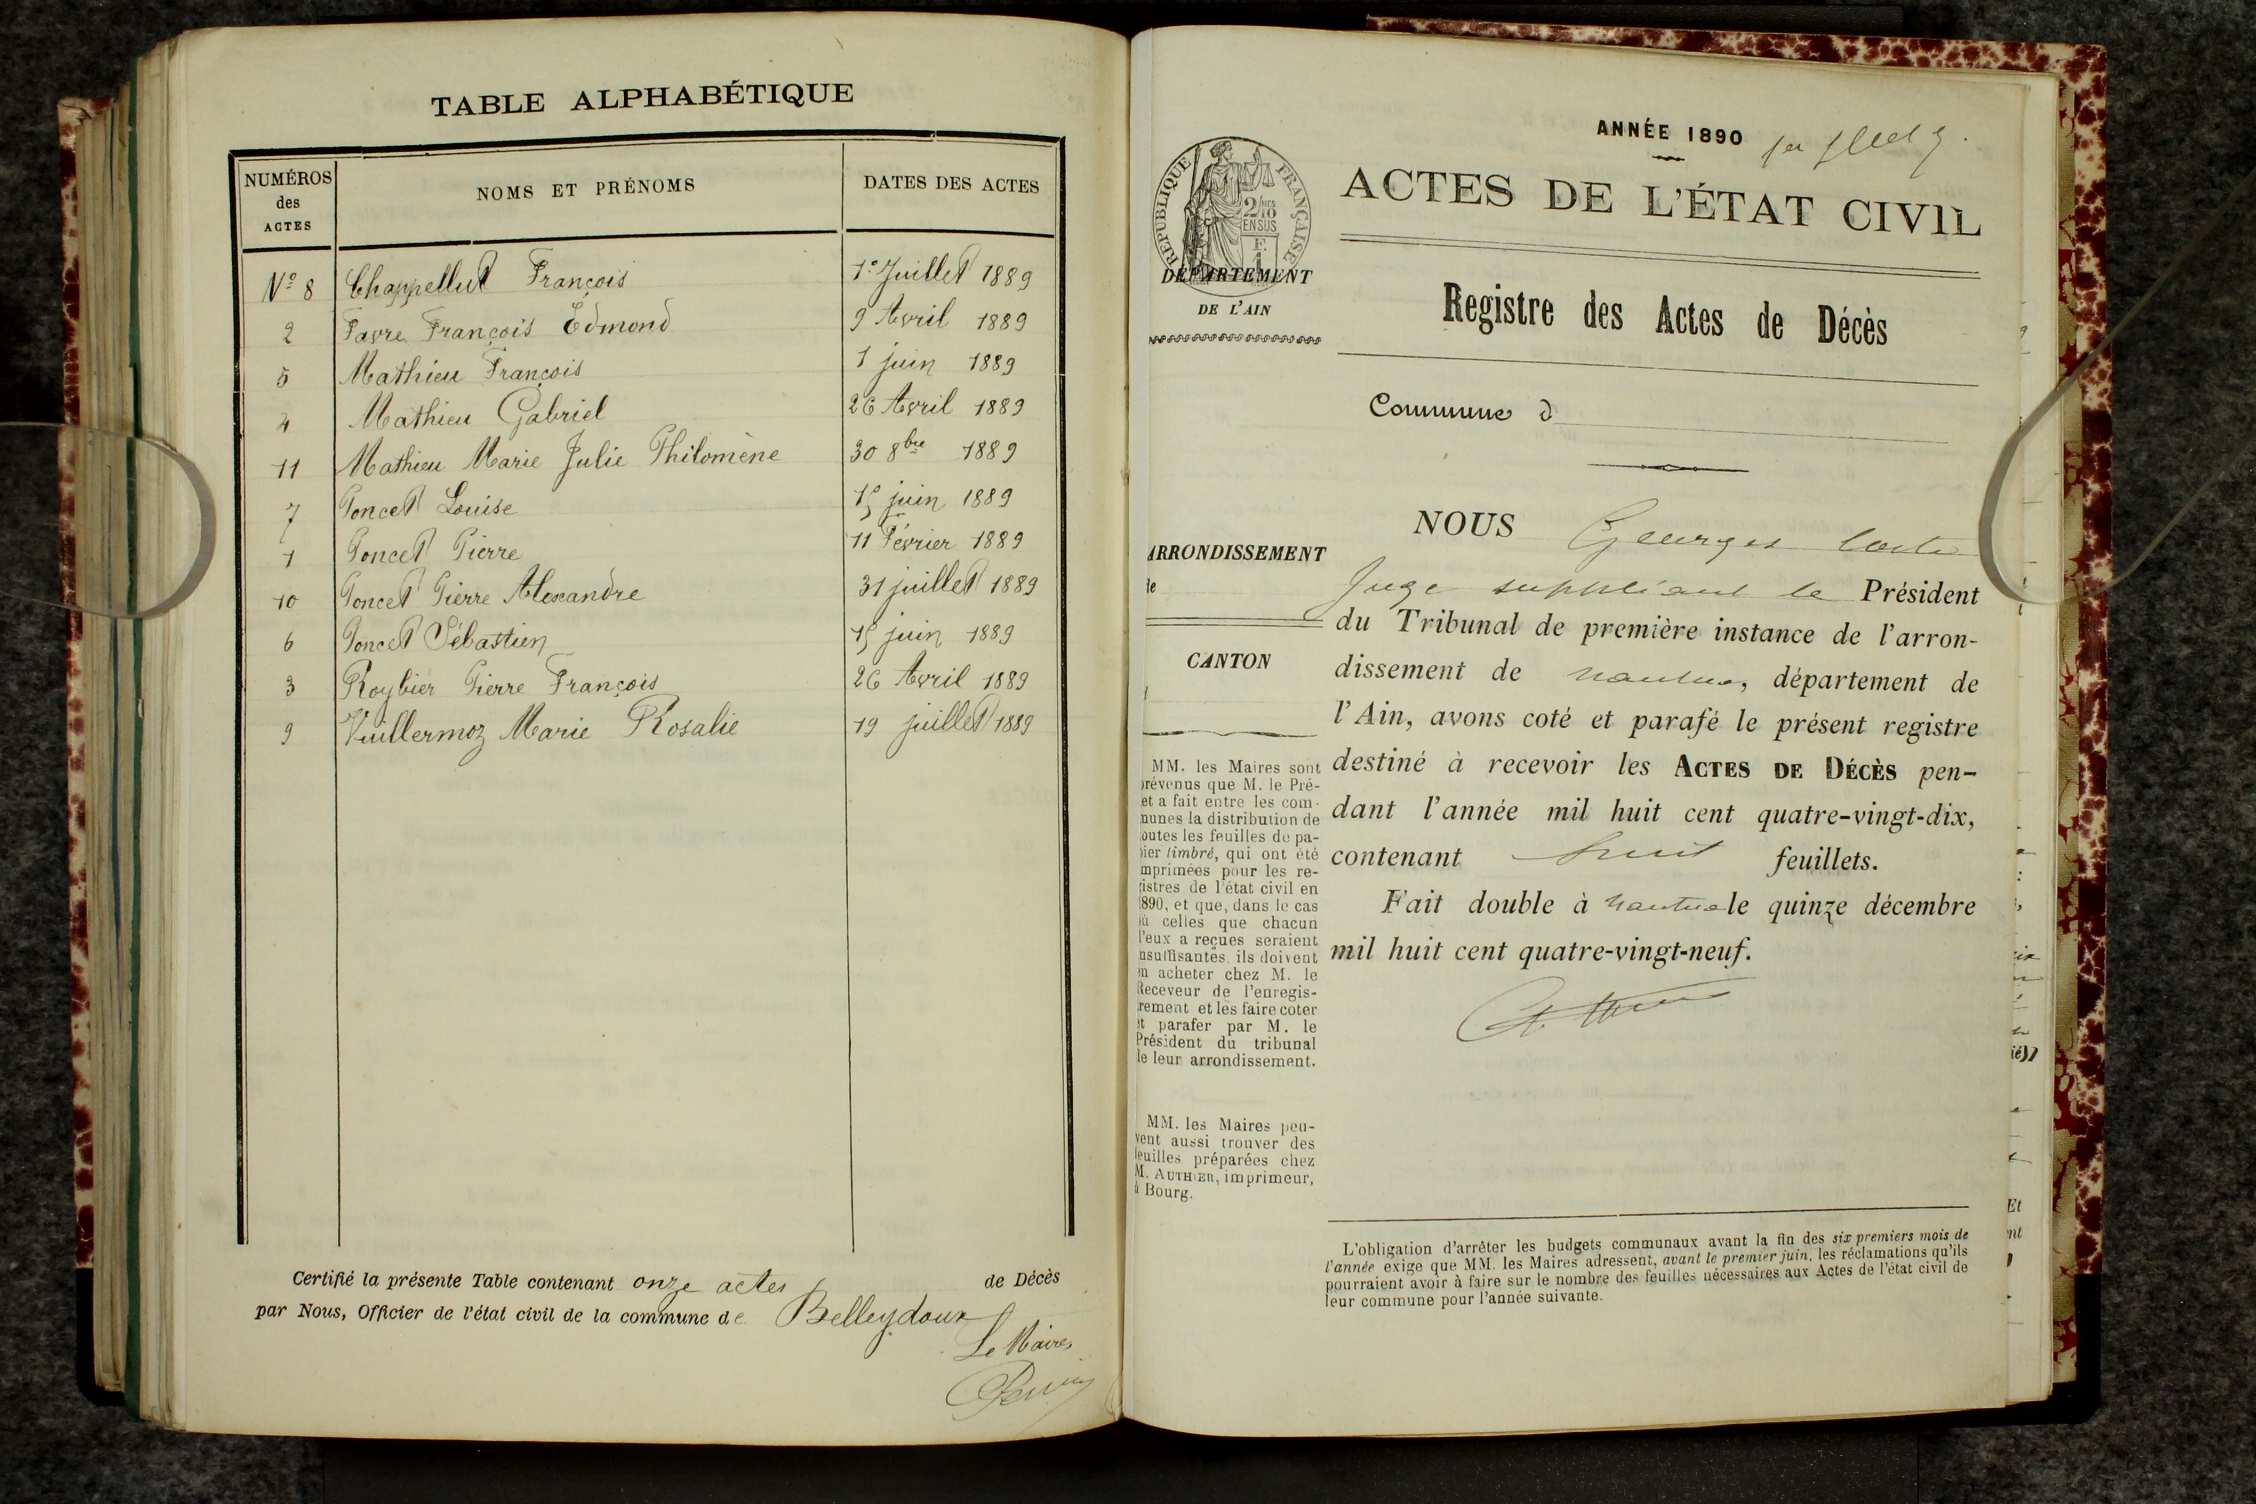 TABLE ALPHABÉTIQUE
NUMÉROS des ACTES
NOMS ET PRÉNOMS
DATES DES ACTES
N° 8 Chappellut François 1° Juillet 1889
2 Favre François Edmond 9 Avril 1889
5 Mathieu François 1 juin 1889
4 Mathieu Gabriel 26 Avril 1889
11 Mathieu Marie Julie Philomène 30 8bre 1889
7 Poncet Louise 15 juin 1889
1 Poncet Pierre 11 Février 1889
10 Poncet Pierre Alexandre 31 juillet 1889
6 Poncet Sébastien 15 juin 1889
3 Roybier Pierre François 26 Avril 1889
9 Vuillermoz Marie Rosalie 19 juillet 1889
Certifié la présente Table contenant onze actes de Décès
par Nous, Officier de l'état civil de la commune de Belleydoux
Le Maire
ANNÉE 1890
RÉPUBLIQUE FRANÇAISE
2/10 EN SUS
ACTES DE L'ÉTAT CIVIL
DÉPARTEMENT
DE L'AIN
Registre des Actes de Décès
Commune d
ARRONDISSEMENT
de
CANTON
NOUS Georges
Juge suppléant le Président
du Tribunal de première instance de l'arron-
dissement de Nantua, département de
l'Ain, avons coté et parafé le présent registre
destiné à recevoir les ACTES DE DÉCÈS pen-
dant l'année mil huit cent quatre-vingt-dix,
contenant huit feuillets.
Fait double à Nantua le quinze décembre
mil huit cent quatre-vingt-neuf.
MM. les Maires sont
prévenus que M. le Pré-
fet a fait entre les com-
munes la distribution de
toutes les feuilles de pa-
pier timbré, qui ont été
imprimées pour les re-
gistres de l'état civil en
1890, et que, dans le cas
où celles que chacun
d'eux a reçues seraient
insuffisantes, ils doivent
en acheter chez M. le
Receveur de l'enregis-
trement et les faire coter
et parafer par M. le
Président du tribunal
de leur arrondissement.
MM. les Maires peu-
vent aussi trouver des
feuilles préparées chez
M. AUTHIER, imprimeur,
à Bourg.
L'obligation d'arrêter les budgets communaux avant la fin des six premiers mois de
l'année exige que MM. les Maires adressent, avant le premier juin, les réclamations qu'ils
pourraient avoir à faire sur le nombre des feuilles nécessaires aux Actes de l'état civil de
leur commune pour l'année suivante.